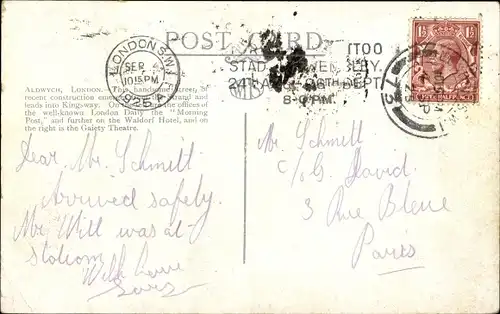 POST CARD
LONDON. S.W.1
SEP
10.15 PM
1925
TTOO
STAD WEMBLEY.
24TH A 26TH SEPT.
8-0 P.M.
1½ 1½
ALDWYCH, LONDON. This handsome street, of
recent construction
leads into Kingsway. On the offices of
the well-known London Daily the "Morning
Post," and further on the Waldorf Hotel, and on
the right is the Gaiety Theatre.
Dear Mr. Schmell
Arrived safely.
Mr Will was at
station
Will have
Mr. Schmell
c/o G. David.
3 Rue Bleue
Paris